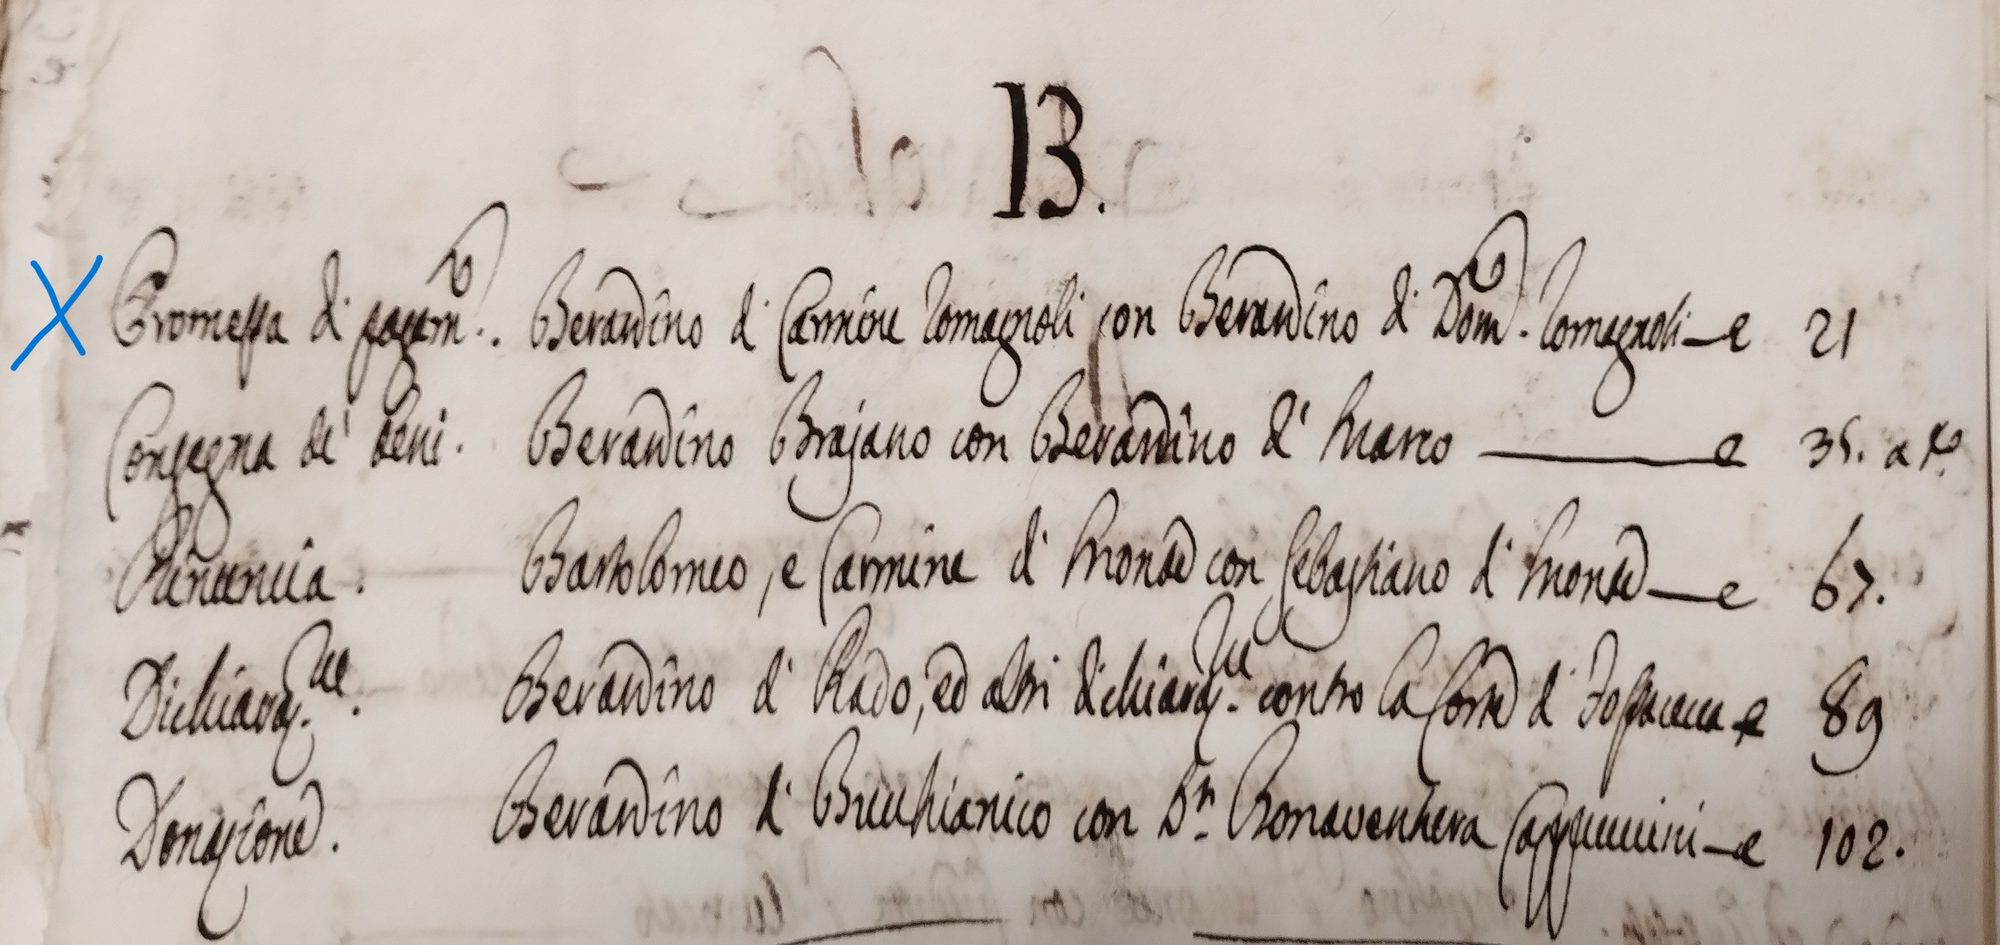 B.
Promessa di pagam.to Berardino di Carmine Romagnoli con Berardino di Dom.co Romagnoli — c 21
Consegna de' beni. Berardino Brajano con Berardino di Marco — c 35. a t.o
Rinuncia. Bartolomeo, e Carmine di Monte con Sebastiano di Monte — c 67.
Dichiaraz.ne. Berardino di Rado, ed altri dichiaraz.ne contro la Corte di Fossaceca c 89
Donazione. Berardino di Bucchianico con D.n Bonaventura Cappuccini — c 102.